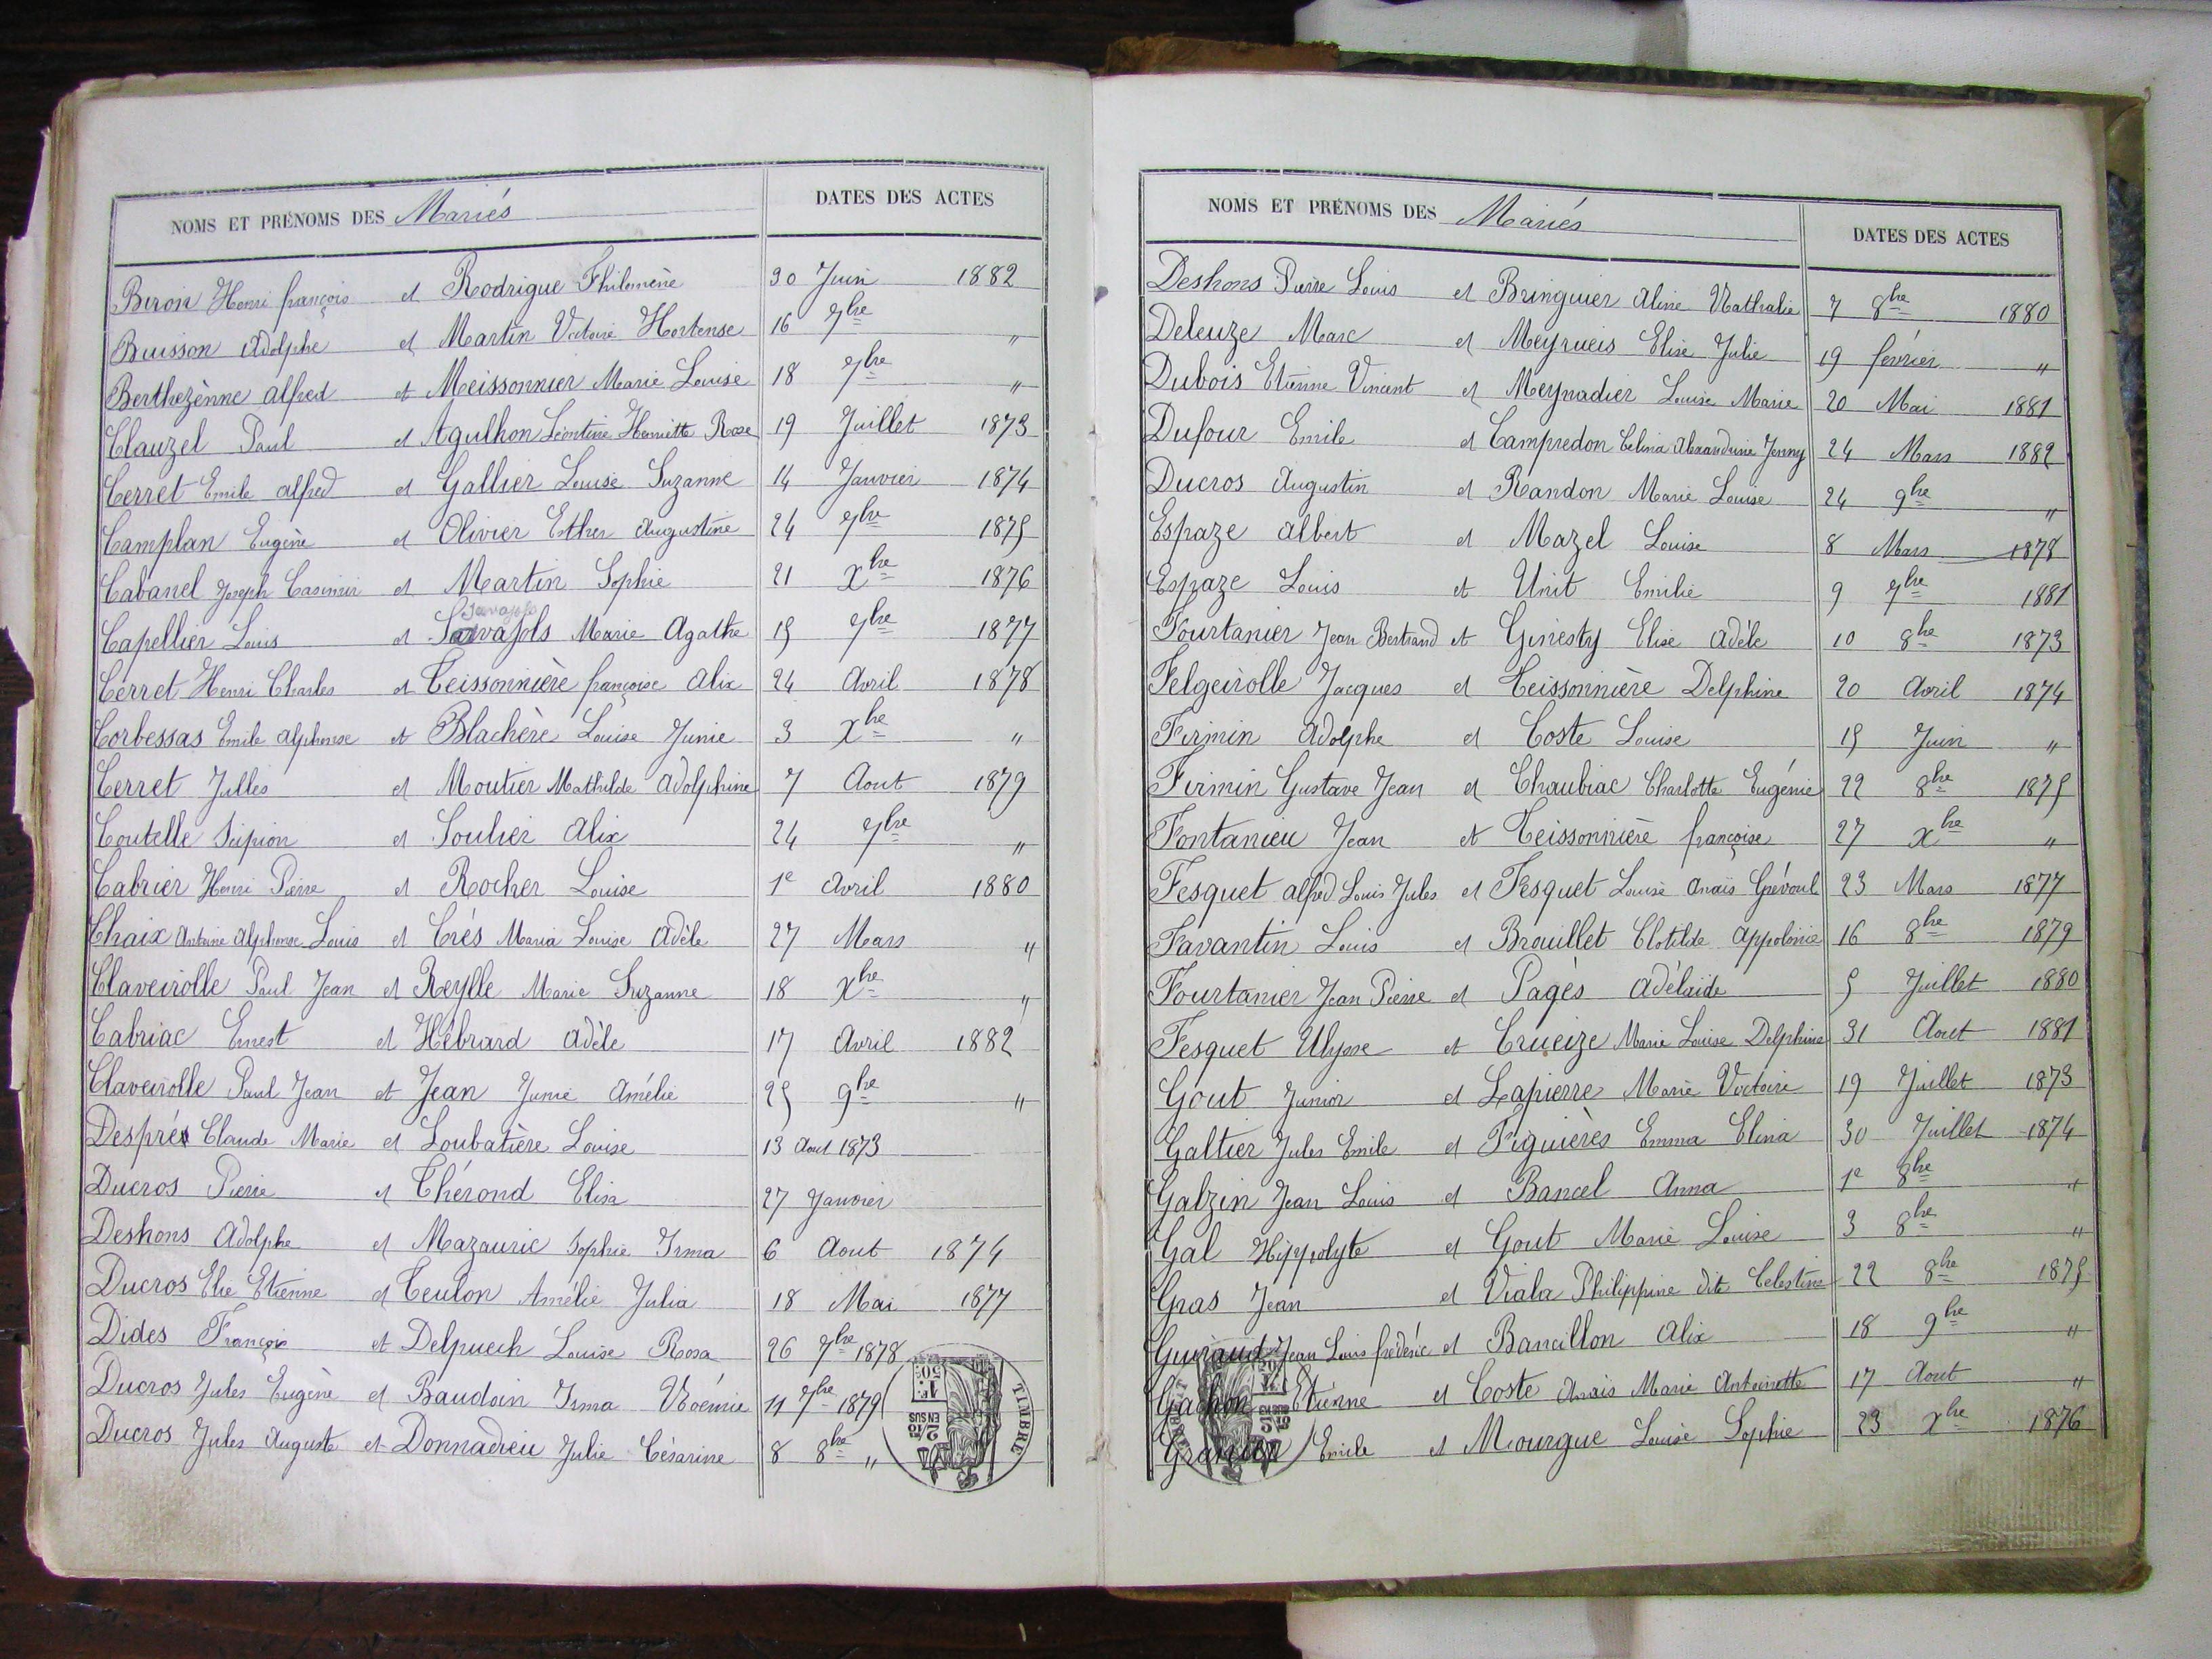 NOMS ET PRÉNOMS DES Mariés DATES DES ACTES
Biron Henri françois et Rodrigue Philomène 30 Juin 1882
Buisson Adolphe et Martin Victoire Hortense 16 7bre "
Berthezènne Alfred et Meissonnier Marie Louise 18 7bre "
Clauzel Paul et Agulhon Léontine Henriette Rose 19 Juillet 1873
Cerret Emile Alfred et Gallier Louise Suzanne 14 Janvier 1874
Camplan Eugène et Olivier Esther Augustine 24 7bre 1875
Cabanel Joseph Casimir et Martin Sophie 21 Xbre 1876
Savajols
Capellier Louis et Savajols Marie Agathe 15 7bre 1877
Cerret Henri Charles et Teissonnière françoise Alix 24 Avril 1878
Corbessas Emile Alphonse et Blachère Louise Junie 3 Xbre "
Cerret Julles et Moutier Mathilde Adolphine 7 Aout 1879
Coutelle Scipion et Soulier Alix 24 7bre "
Cabrier Henri Pierre et Rocher Louise 1e Avril 1880
Chaix Antoine Alphonse Louis et Crés Maria Louise Adèle 27 Mars "
Claveirolle Paul Jean et Reylle Marie Suzanne 18 Xbre "
Cabriac Ernest et Hébrard Adèle 17 Avril 1882
Claveirolle Paul Jean et Jean Junie Amélie 25 9bre "
Desprét Claude Marie et Loubatière Louise 13 Aout 1873
Ducros Pierre et Thérond Elisa 27 Janvier
Deshons Adolphe et Mazauric Sophie Irma 6 Aout 1874
Ducros Elie Etienne et Teulon Amélie Julia 18 Mai 1877
Dides François et Delpuech Louise Rosa 26 7bre 1878
Ducros Jules Eugène et Baudoin Irma Noémie 11 7bre 1879
Ducros Jules Auguste et Donnadieu Julie Césarine 8 8bre "
1F 50c
2/10 EN SUS
TIMBRE
NOMS ET PRÉNOMS DES Mariés DATES DES ACTES
Deshons Pierre Louis et Bringuier Aline Nathalie 7 8bre 1880
Deleuze Marc et Meyrueis Elise Julie 19 février "
Dubois Etienne Vincent et Meynadier Louise Marie 20 Mai 1881
Dufour Emile et Campredon Celina Alexandrine Jenny 24 Mars 1882
Ducros Augustin et Randon Marie Louise 24 9bre "
Espaze Albert et Mazel Louise 8 Mars 1878
Espaze Louis et Unit Emilie 9 7bre 1881
Fourtanier Jean Bertrand et Ginesty Elise Adèle 10 8bre 1873
Felgeirolle Jacques et Teissonnière Delphine 20 Avril 1874
Firmin Adolphe et Coste Louise 15 Juin "
Firmin Gustave Jean et Chaubiac Charlotte Eugénie 22 8bre 1875
Fontanieu Jean et Teissonnière françoise 27 Xbre "
Fesquet Alfred Louis Jules et Fesquet Louise Anaïs Grévoul 23 Mars 1877
Favantin Louis et Brouillet Clotilde Appolonie 16 8bre 1879
Fourtanier Jean Pierre et Pagès Adélaïde 5 Juillet 1880
Fesquet Ulysse et Crueize Marie Louise Delphine 31 Aout 1881
Gout Junior et Lapierre Marie Victoire 19 Juillet 1873
Galtier Jules Emile et Figuières Emma Elina 30 Juillet 1874
Galzin Jean Louis et Bancel Anna 1e 8bre "
Gal Hippolyte et Gout Marie Louise 3 8bre "
Gras Jean et Viala Philippine dite Celestine 22 8bre 1875
Guiraud Jean Louis fréderic et Bancillon Alix 18 9bre "
Gachon Etienne et Coste Anaïs Marie Antoinette 17 Aout "
Granier Emile et Mourgue Louise Sophie 23 Xbre 1876